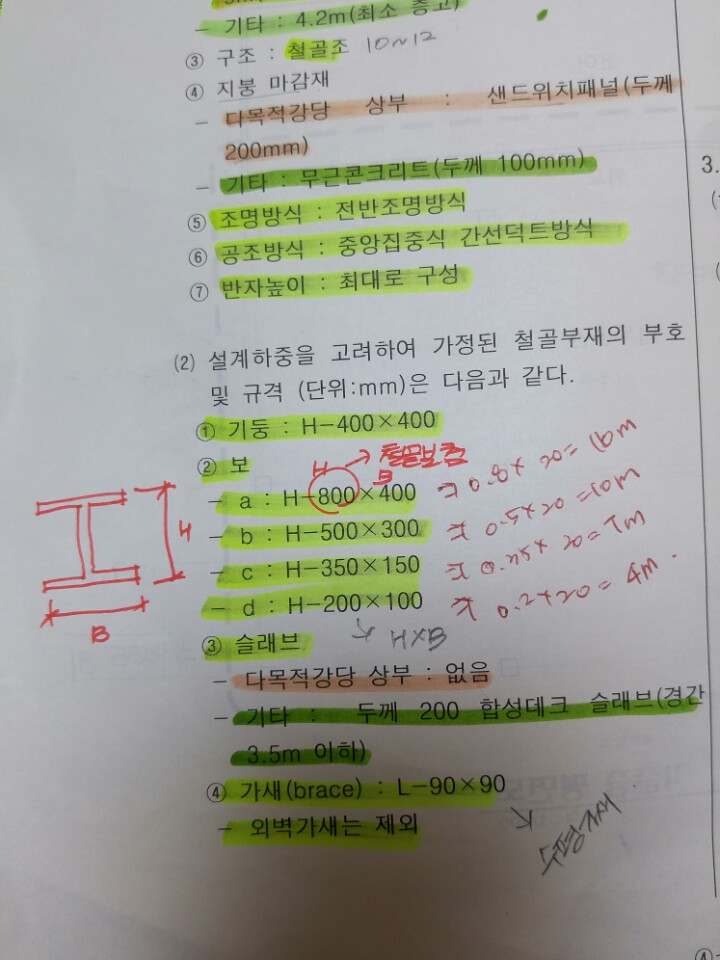 - 기타 : 4.2m(최소 층고)
③ 구조 : 철골조 10~12
④ 지붕 마감재
- 다목적강당 상부 : 샌드위치패널(두께
200mm)
- 기타 : 무근콘크리트(두께 100mm)
⑤ 조명방식 : 전반조명방식
⑥ 공조방식 : 중앙집중식 간선덕트방식
⑦ 반자높이 : 최대로 구성
(2) 설계하중을 고려하여 가정된 철골부재의 부호
및 규격 (단위:mm)은 다음과 같다.
① 기둥 : H-400×400
② 보
H → 철골보춤
- a : H-800×400 0.8 × 20 = 16m
- b : H-500×300 0.5 × 20 = 10m
- c : H-350×150 × 20 = 7m
- d : H-200×100 0.2 × 20 = 4m
H
B
③ 슬래브 B×H
- 다목적강당 상부 : 없음
- 기타 : 두께 200 합성데크 슬래브(경간
3.5m 이하)
④ 가새(brace) : L-90×90
수평가새
- 외벽가새는 제외
3.